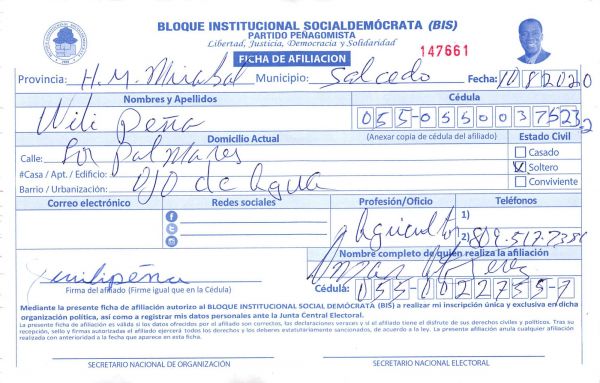 BLOQUE INSTITUCIONAL SOCIALDEMÓCRATA (BIS)
PARTIDO PEÑAGOMISTA
Libertad, Justicia, Democracia y Solidaridad
FICHA DE AFILIACION
147661
Provincia: H.M. Mirabal Municipio: Salcedo Fecha: 10 8 2020
Nombres y Apellidos Cédula
Wili Peña 055-05500375232
Domicilio Actual (Anexar copia de cédula del afiliado) Estado Civil
Calle: Los Palmares Casado
#Casa / Apt. / Edificio: Soltero
Barrio / Urbanización: Ojo de Agua Conviviente
Correo electrónico Redes sociales Profesión/Oficio Teléfonos
Agricultor 1)
2) 809-517-7381
Nombre completo de quién realiza la afiliación
wilipeña
Firma del afiliado (Firme igual que en la Cédula) Cédula: 055-0022755-7
Mediante la presente ficha de afiliación autorizo al BLOQUE INSTITUCIONAL SOCIAL DEMÓCRATA (BIS) a realizar mi inscripción única y exclusiva en dicha
organización política, así como a registrar mis datos personales ante la Junta Central Electoral.
La presente ficha de afiliación es válida si los datos ofrecidos por el afiliado son correctos, las declaraciones veraces y si el afiliado tiene el disfrute de sus derechos civiles y políticos. Tras su
recepción, sello y firmas autorizadas el afiliado ejercerá todos los derechos y los deberes estatutariamente sancionados, de acuerdo a la ley. La presente afiliación anula cualquier afiliación
realizada con anterioridad a la fecha que aparece en esta ficha.
SECRETARIO NACIONAL DE ORGANIZACIÓN SECRETARIO NACIONAL ELECTORAL